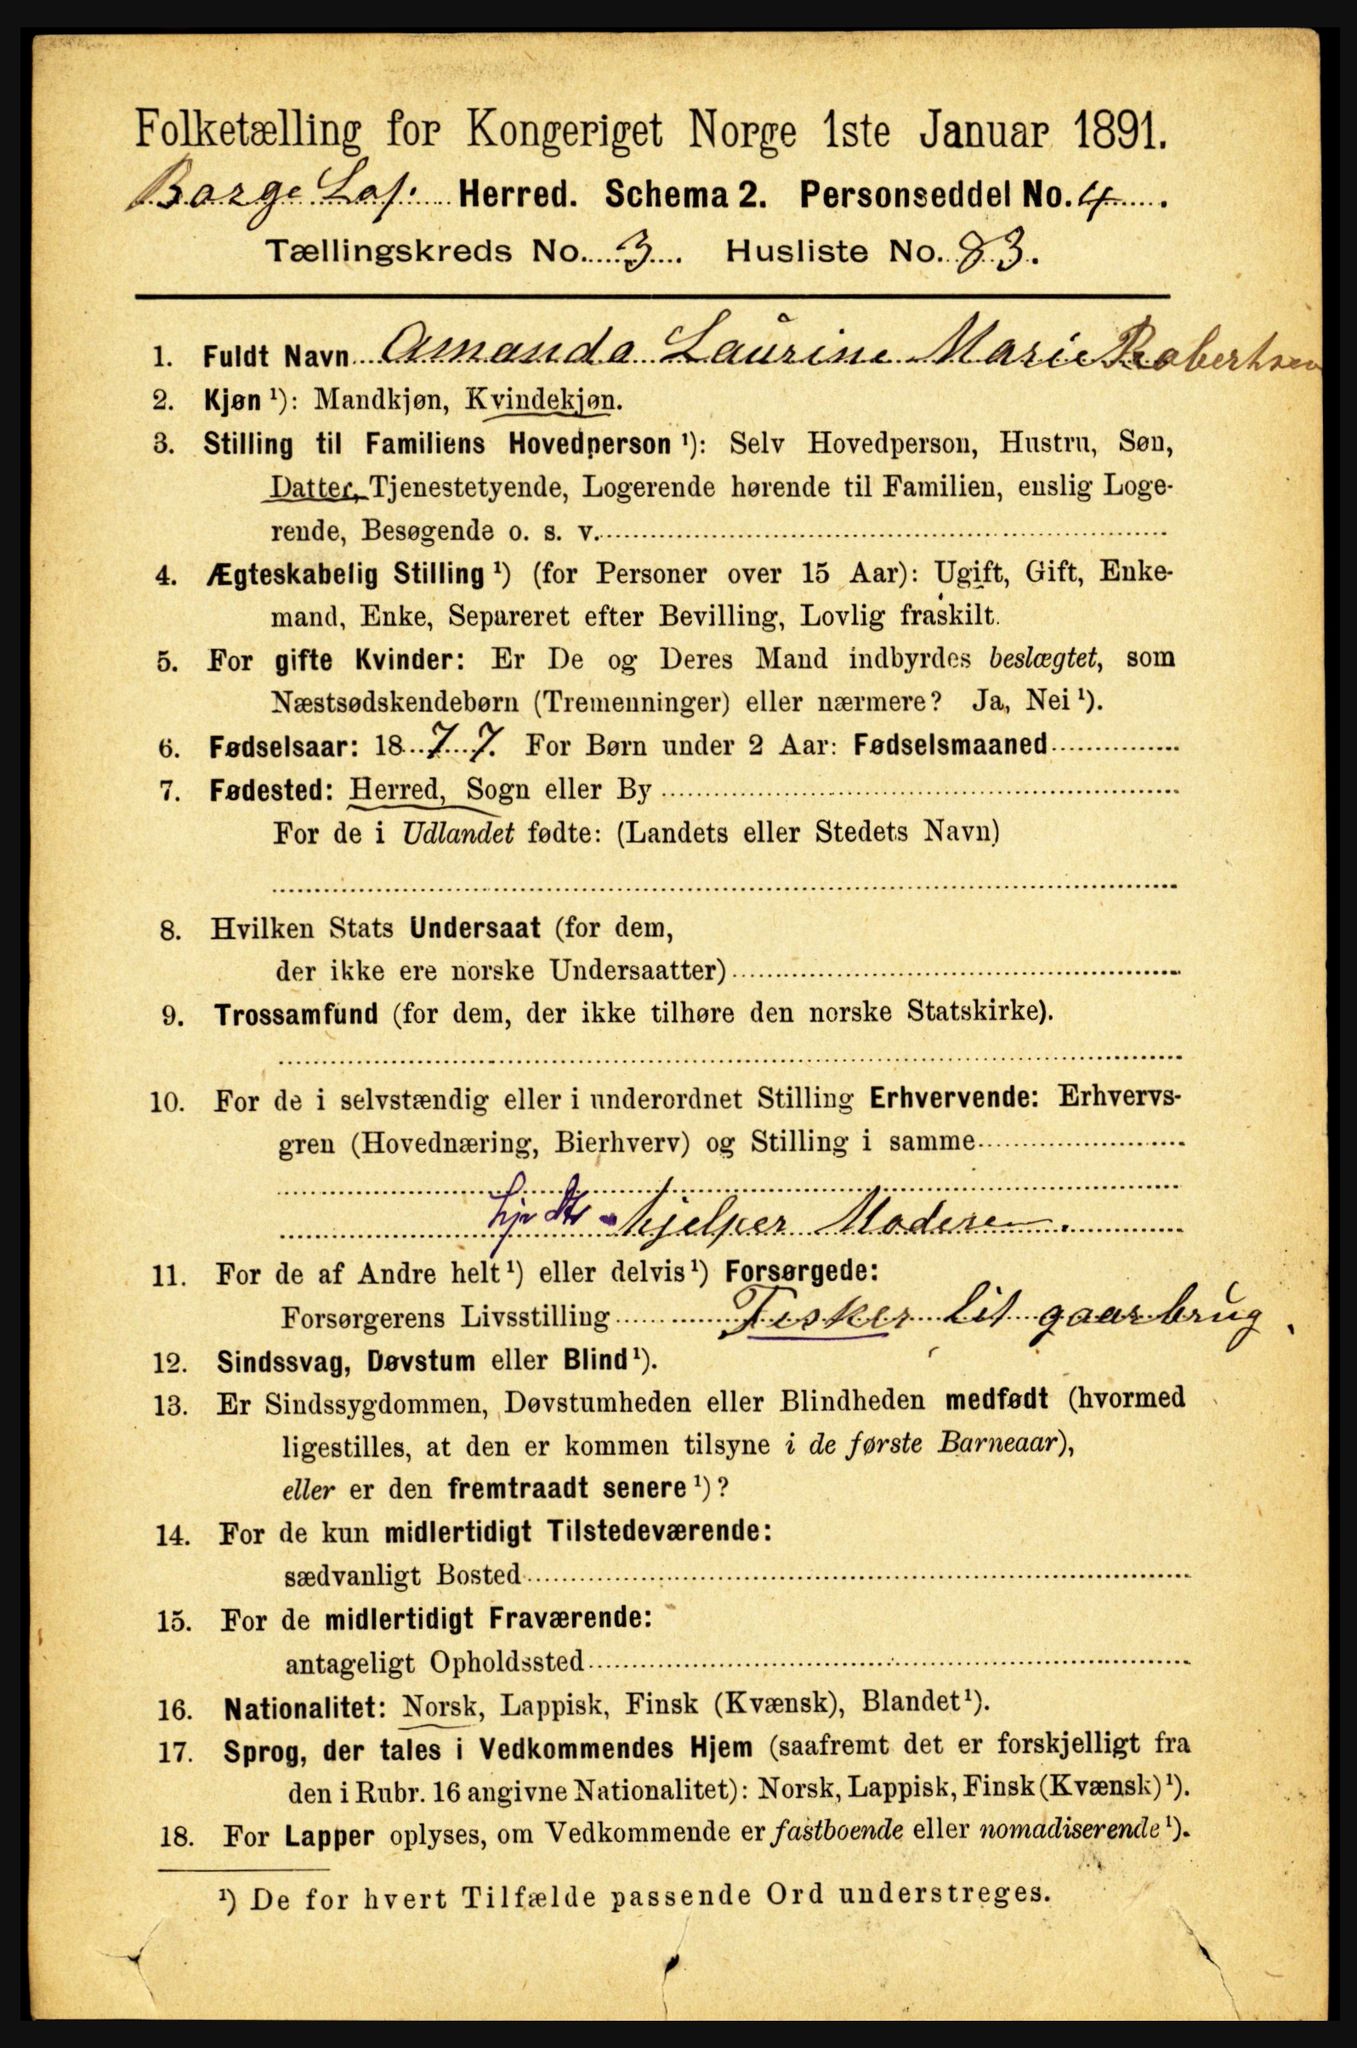 Folketælling for Kongeriget Norge 1ste Januar 1891.
Borge Lof. Herred. Schema 2. Personseddel No. 4.
Tællingskreds No. 3. Husliste No. 83.
1. Fuldt Navn Amanda Laurine Marie Robertsen
2. Kjøn ¹): Mandkjøn, Kvindekjøn.
3. Stilling til Familiens Hovedperson ¹): Selv Hovedperson, Hustru, Søn,
Datter, Tjenestetyende, Logerende hørende til Familien, enslig Loge-
rende, Besøgende o. s. v.
4. Ægteskabelig Stilling ¹) (for Personer over 15 Aar): Ugift, Gift, Enke-
mand, Enke, Separeret efter Bevilling, Lovlig fraskilt.
5. For gifte Kvinder: Er De og Deres Mand indbyrdes beslægtet, som
Næstsødskendebørn (Tremenninger) eller nærmere? Ja, Nei ¹).
6. Fødselsaar: 1877. For Børn under 2 Aar: Fødselsmaaned
7. Fødested: Herred, Sogn eller By
For de i Udlandet fødte: (Landets eller Stedets Navn)
8. Hvilken Stats Undersaat (for dem,
der ikke ere norske Undersaatter)
9. Trossamfund (for dem, der ikke tilhøre den norske Statskirke).
10. For de i selvstændig eller i underordnet Stilling Erhvervende: Erhvervs-
gren (Hovednæring, Bierhverv) og Stilling i samme
hjelper Moderen.
11. For de af Andre helt ¹) eller delvis ¹) Forsørgede:
Forsørgerens Livsstilling Fisker lit gaarbrug
12. Sindssvag, Døvstum eller Blind ¹).
13. Er Sindssygdommen, Døvstumheden eller Blindheden medfødt (hvormed
ligestilles, at den er kommen tilsyne i de første Barneaar),
eller er den fremtraadt senere ¹)?
14. For de kun midlertidigt Tilstedeværende:
sædvanligt Bosted
15. For de midlertidigt Fraværende:
antageligt Opholdssted
16. Nationalitet: Norsk, Lappisk, Finsk (Kvænsk), Blandet ¹).
17. Sprog, der tales i Vedkommendes Hjem (saafremt det er forskjelligt fra
den i Rubr. 16 angivne Nationalitet): Norsk, Lappisk, Finsk (Kvænsk) ¹).
18. For Lapper oplyses, om Vedkommende er fastboende eller nomadiserende ¹).
¹) De for hvert Tilfælde passende Ord understreges.